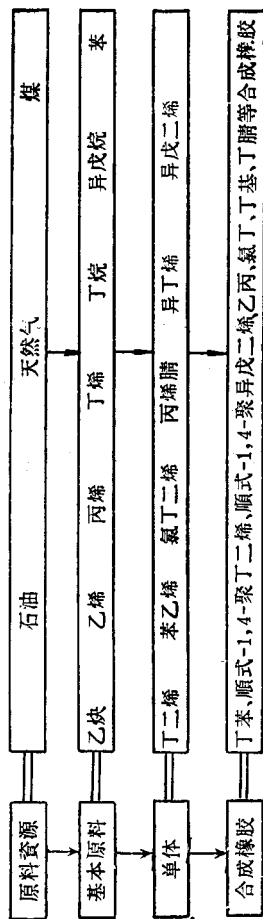 原料資源
石油 天然气 煤
基本原料
乙炔 乙烯 丙烯 丁烯 丁烷 异戊烷 苯
单体
丁二烯 苯乙烯 氯丁二烯 丙烯腈 异丁烯 异戊二烯
合成橡胶
丁苯、順式-1,4-聚丁二烯、順式-1,4-聚异戊二烯、乙丙、氯丁、丁基、丁腈等合成橡胶